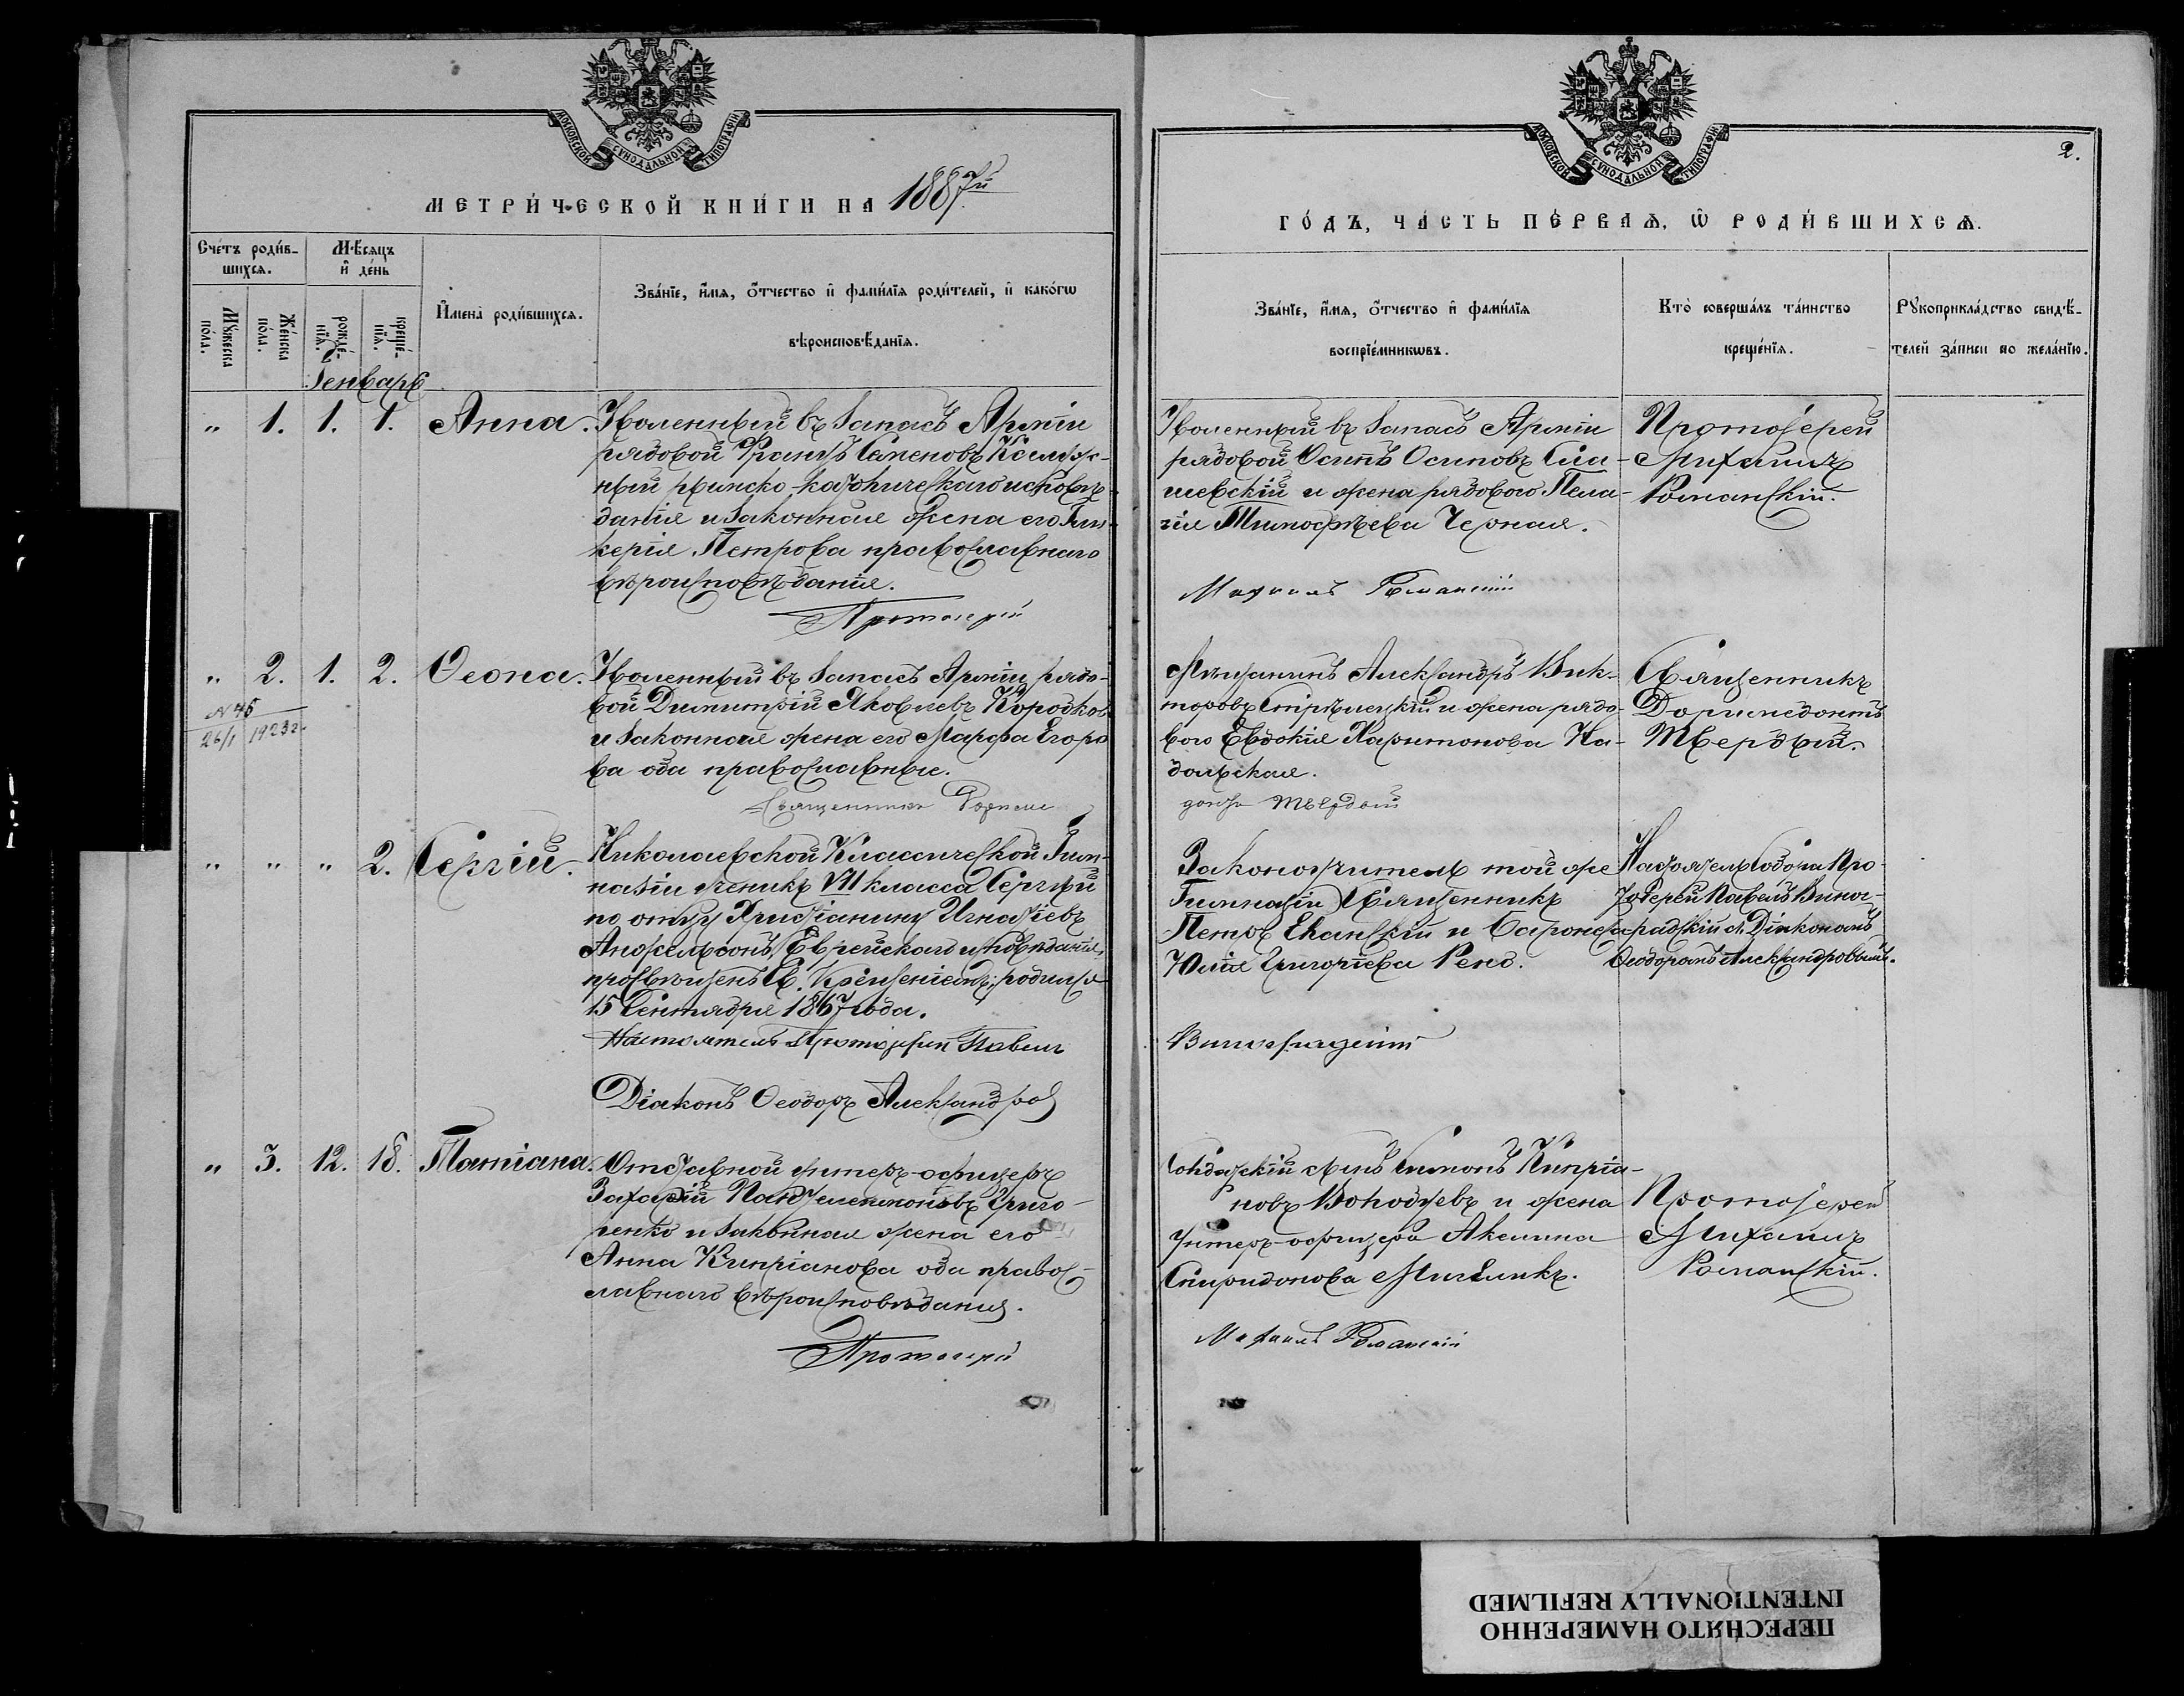 МОСКОВСКОЙ СѴНОДАЛЬНОЙ ТИПОГРАФІИ
МЕТРИ́ЧЕСКОЙ КНИ́ГИ НА 1887й
Сче́тъ роди́в-
шихсѧ.
Мѣ́сѧцъ
и҆ де́нь
Мꙋ́жеска
по́ла.
Же́нска
по́ла.
рожде́-
нїѧ.
креще́-
нїѧ.
И҆мена̀ роди́вшихсѧ.
Зва́нїе, и҆́мѧ, ѻ҆́тчество и҆ фами́лїѧ роди́телей, и҆ како́гѡ
вѣроисповѣ́данїѧ.
Генварь
„ 1. 1. 1. Анна.
Уволенный въ запасъ Арміи
рядовой Францъ Семеновъ
ный римско-католическаго исповѣ-
данія и законная жена его Гли-
керія Петрова православнаго
вѣроисповѣданія.
Протоіерей
„ 2. 1. 2. Ѳеона.
№ 45
26/I 1923 г.
Уволенный въ запасъ Арміи рядо-
вой Димитрій Яковлевъ Коробков
и законная жена его Марфа Егоро
ва оба православные.
Священникъ
„ „ „ 2. Сергій.
Николаевской Классической Гим-
назіи ученикъ VII класса Сергій
по отцу Христіанину Игнатіевъ
Анжельсонъ, Еврейскаго исповѣданія,
просвѣщенъ Св. Крещеніемъ; родился
15 Сентября 1867 года.
Настоятель Протоіерей Павелъ
Діаконъ Ѳеодоръ Александровъ
„ 3. 12. 18. Татіана.
Отставной унтеръ-офицеръ
Захарій Пантелеимоновъ Григо-
ренко и законная жена его
Анна Кипріанова оба правос-
лавнаго вѣроисповѣданія.
Протоіерей
МОСКОВСКОЙ СѴНОДАЛЬНОЙ ТИПОГРАФІИ
2.
ГО́ДЪ, ЧА́СТЬ ПЕ́РВАѦ, Ѽ РОДИ́ВШИХСѦ.
Зва́нїе, и҆́мѧ, ѻ҆́тчество и҆ фами́лїѧ
воспрїе́мникѡвъ.
Кто̀ соверша́лъ та́инство
креще́нїѧ.
Рꙋкоприкла́дство свидѣ́-
телей за́писи по жела́нїю.
Уволенный въ запасъ Арміи
рядовой Осипъ Осиповъ
шевскій и жена рядового Пела-
гія Тимофѣева Черная.
Протоіерей
Михаилъ
Романскій.
Михаилъ Романскій
Мѣщанинъ Александръ Вик-
торовъ Стрѣлецкій и жена рядо-
вого Евдокія Харитонова На-
дольская.
Священникъ
Доримедонтъ
Твердый.
донтъ Твердый
Законоучитель той же
Гимназіи Священникъ
Петръ Еланскій и Баронеса
Юлія Григоріева Рено.
Настоятель Собора Про-
тоіерей Павелъ Виног-
радскій съ Діакономъ
Ѳеодоромъ Александровымъ.
Виноградскій
Солдатскій сынъ Симонъ Кипріа-
новъ Володуевъ и жена
унтеръ-офицера Акилина
Спиридонова
Протоіерей
Михаилъ
Романскій.
Михаилъ Романскій
ПЕРЕСНЯТО НАМЕРЕННО
INTENTIONALLY REFILMED